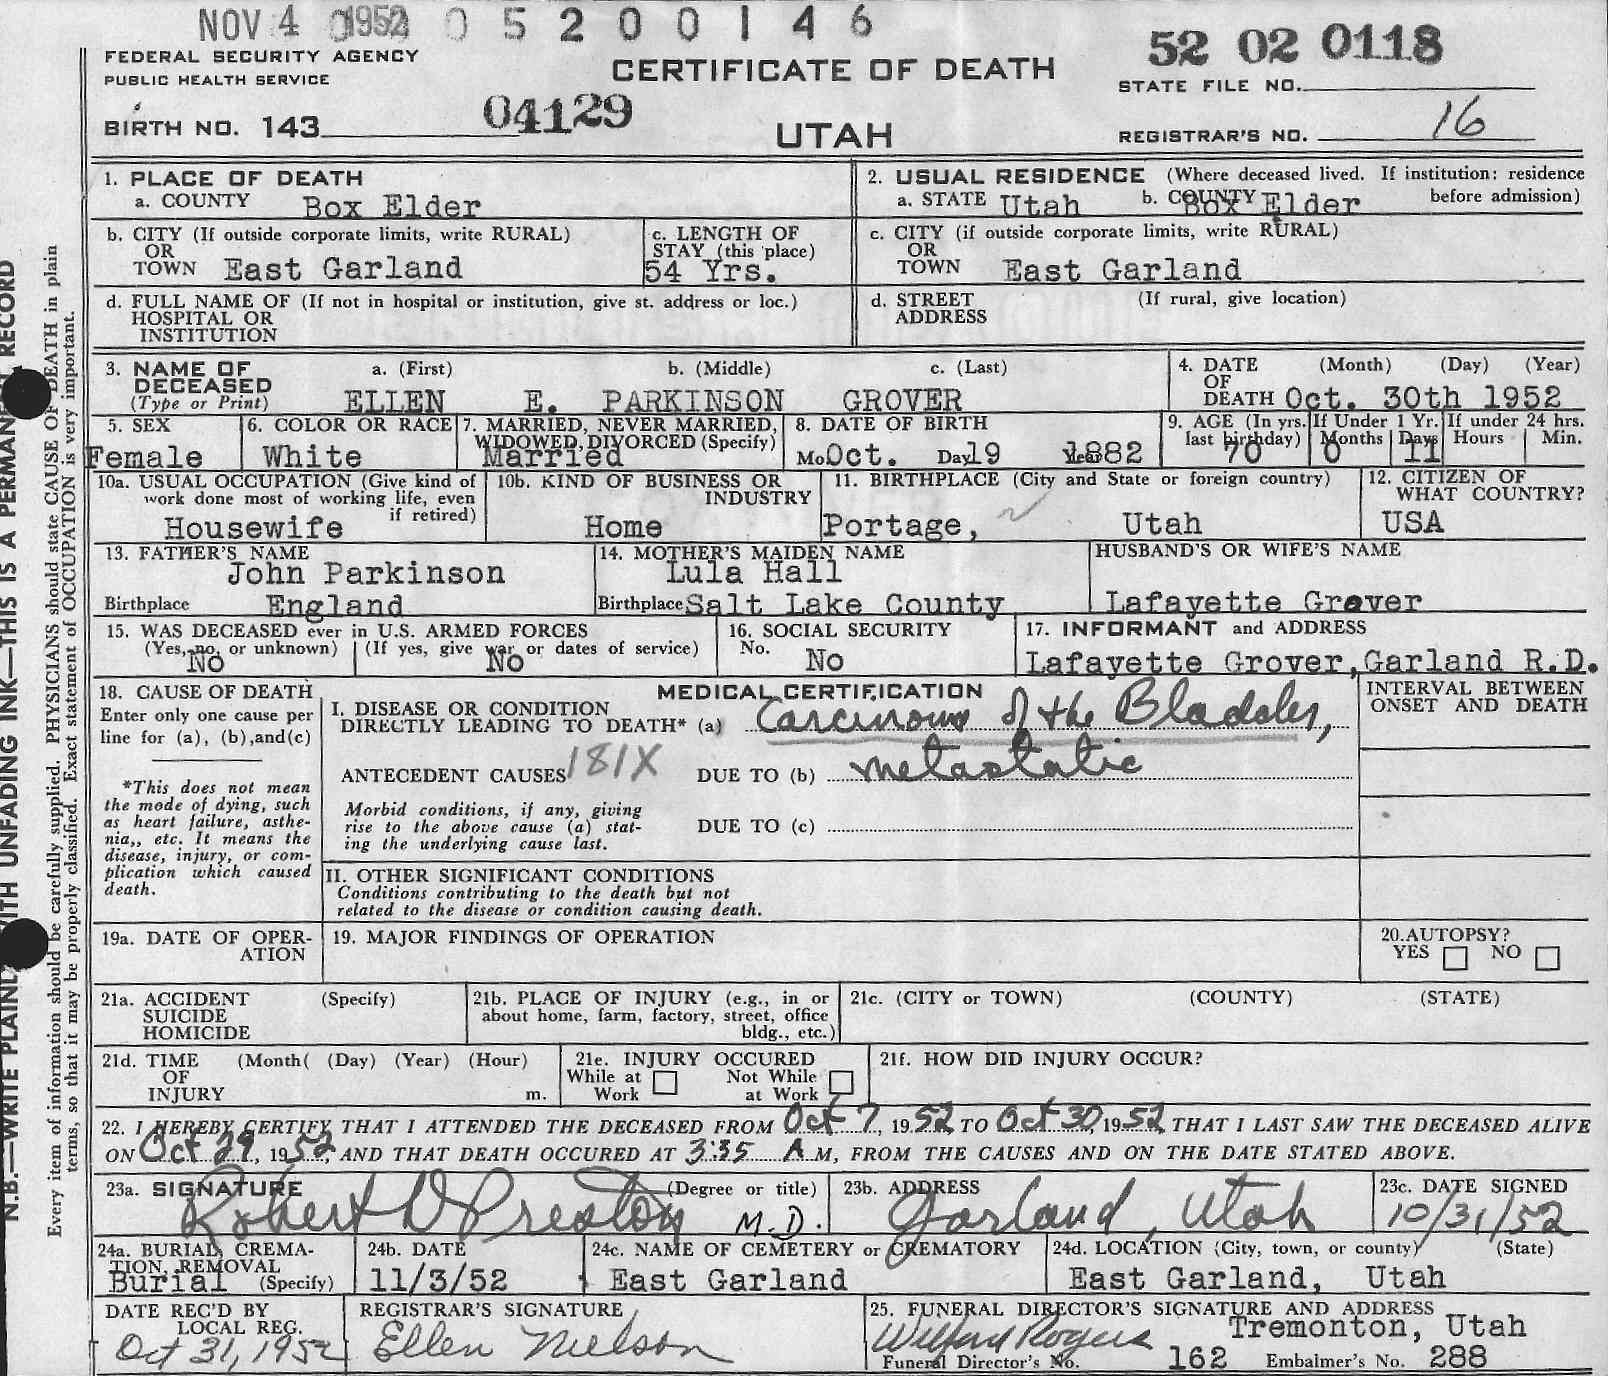 NOV 4 1952 0 5 2 0 0 1 4 6
FEDERAL SECURITY AGENCY
PUBLIC HEALTH SERVICE
CERTIFICATE OF DEATH
52 02 0118
STATE FILE NO.
BIRTH NO. 143 04129
UTAH
REGISTRAR'S NO. 16
1. PLACE OF DEATH
a. COUNTY Box Elder
2. USUAL RESIDENCE (Where deceased lived. If institution: residence before admission)
a. STATE Utah b. COUNTY Box Elder
b. CITY (If outside corporate limits, write RURAL)
OR
TOWN East Garland
c. LENGTH OF
STAY (this place)
54 Yrs.
c. CITY (if outside corporate limits, write RURAL)
OR
TOWN East Garland
d. FULL NAME OF (If not in hospital or institution, give st. address or loc.)
HOSPITAL OR
INSTITUTION
d. STREET (If rural, give location)
ADDRESS
3. NAME OF a. (First) b. (Middle) c. (Last)
DECEASED
(Type or Print) ELLEN E. PARKINSON GROVER
4. DATE (Month) (Day) (Year)
OF
DEATH Oct. 30th 1952
5. SEX
Female
6. COLOR OR RACE
White
7. MARRIED, NEVER MARRIED,
WIDOWED, DIVORCED (Specify)
Married
8. DATE OF BIRTH
Mo Oct. Day 19 Year 1882
9. AGE (In yrs. last birthday) 70
If Under 1 Yr. Months 0 Days 11
If under 24 hrs. Hours Min.
10a. USUAL OCCUPATION (Give kind of
work done most of working life, even
if retired)
Housewife
10b. KIND OF BUSINESS OR
INDUSTRY
Home
11. BIRTHPLACE (City and State or foreign country)
Portage, Utah
12. CITIZEN OF
WHAT COUNTRY?
USA
13. FATHER'S NAME
John Parkinson
Birthplace England
14. MOTHER'S MAIDEN NAME
Lula Hall
Birthplace Salt Lake County
HUSBAND'S OR WIFE'S NAME
Lafayette Grover
15. WAS DECEASED ever in U.S. ARMED FORCES
(Yes, no, or unknown) (If yes, give war or dates of service)
No No
16. SOCIAL SECURITY
No. No
17. INFORMANT and ADDRESS
Lafayette Grover, Garland R.D.
18. CAUSE OF DEATH
Enter only one cause per
line for (a), (b),and(c)
*This does not mean
the mode of dying, such
as heart failure, asthe-
nia,, etc. It means the
disease, injury, or com-
plication which caused
death.
MEDICAL CERTIFICATION
I. DISEASE OR CONDITION
DIRECTLY LEADING TO DEATH* (a) Carcinoma of the Bladder,
ANTECEDENT CAUSES 181X DUE TO (b) metastatic
Morbid conditions, if any, giving
rise to the above cause (a) stat-
ing the underlying cause last.
DUE TO (c)
INTERVAL BETWEEN
ONSET AND DEATH
II. OTHER SIGNIFICANT CONDITIONS
Conditions contributing to the death but not
related to the disease or condition causing death.
19a. DATE OF OPER-
ATION
19. MAJOR FINDINGS OF OPERATION
20.AUTOPSY?
YES NO
21a. ACCIDENT (Specify)
SUICIDE
HOMICIDE
21b. PLACE OF INJURY (e.g., in or
about home, farm, factory, street, office
bldg., etc.)
21c. (CITY or TOWN) (COUNTY) (STATE)
21d. TIME (Month( (Day) (Year) (Hour)
OF
INJURY m.
21e. INJURY OCCURED
While at Work Not While at Work
21f. HOW DID INJURY OCCUR?
22. I HEREBY CERTIFY THAT I ATTENDED THE DECEASED FROM Oct 7, 1952, TO Oct 30, 1952, THAT I LAST SAW THE DECEASED ALIVE
ON Oct 29, 1952, AND THAT DEATH OCCURED AT 3:35 A M, FROM THE CAUSES AND ON THE DATE STATED ABOVE.
23a. SIGNATURE (Degree or title)
Robert D Preston M.D.
23b. ADDRESS
Garland, Utah
23c. DATE SIGNED
10/31/52
24a. BURIAL, CREMA-
TION, REMOVAL
Burial (Specify)
24b. DATE
11/3/52
24c. NAME OF CEMETERY or CREMATORY
East Garland
24d. LOCATION (City, town, or county) (State)
East Garland, Utah
DATE REC'D BY
LOCAL REG.
Oct 31, 1952
REGISTRAR'S SIGNATURE
Ellen Nielson
25. FUNERAL DIRECTOR'S SIGNATURE AND ADDRESS
Wilford Rogers Tremonton, Utah
Funeral Director's No. 162 Embalmer's No. 288
N.B.—WRITE PLAINLY WITH UNFADING INK—THIS IS A PERMANENT RECORD
Every item of information should be carefully supplied. PHYSICIANS should state CAUSE OF DEATH in plain
terms, so that it may be properly classified. Exact statement of OCCUPATION is very important.